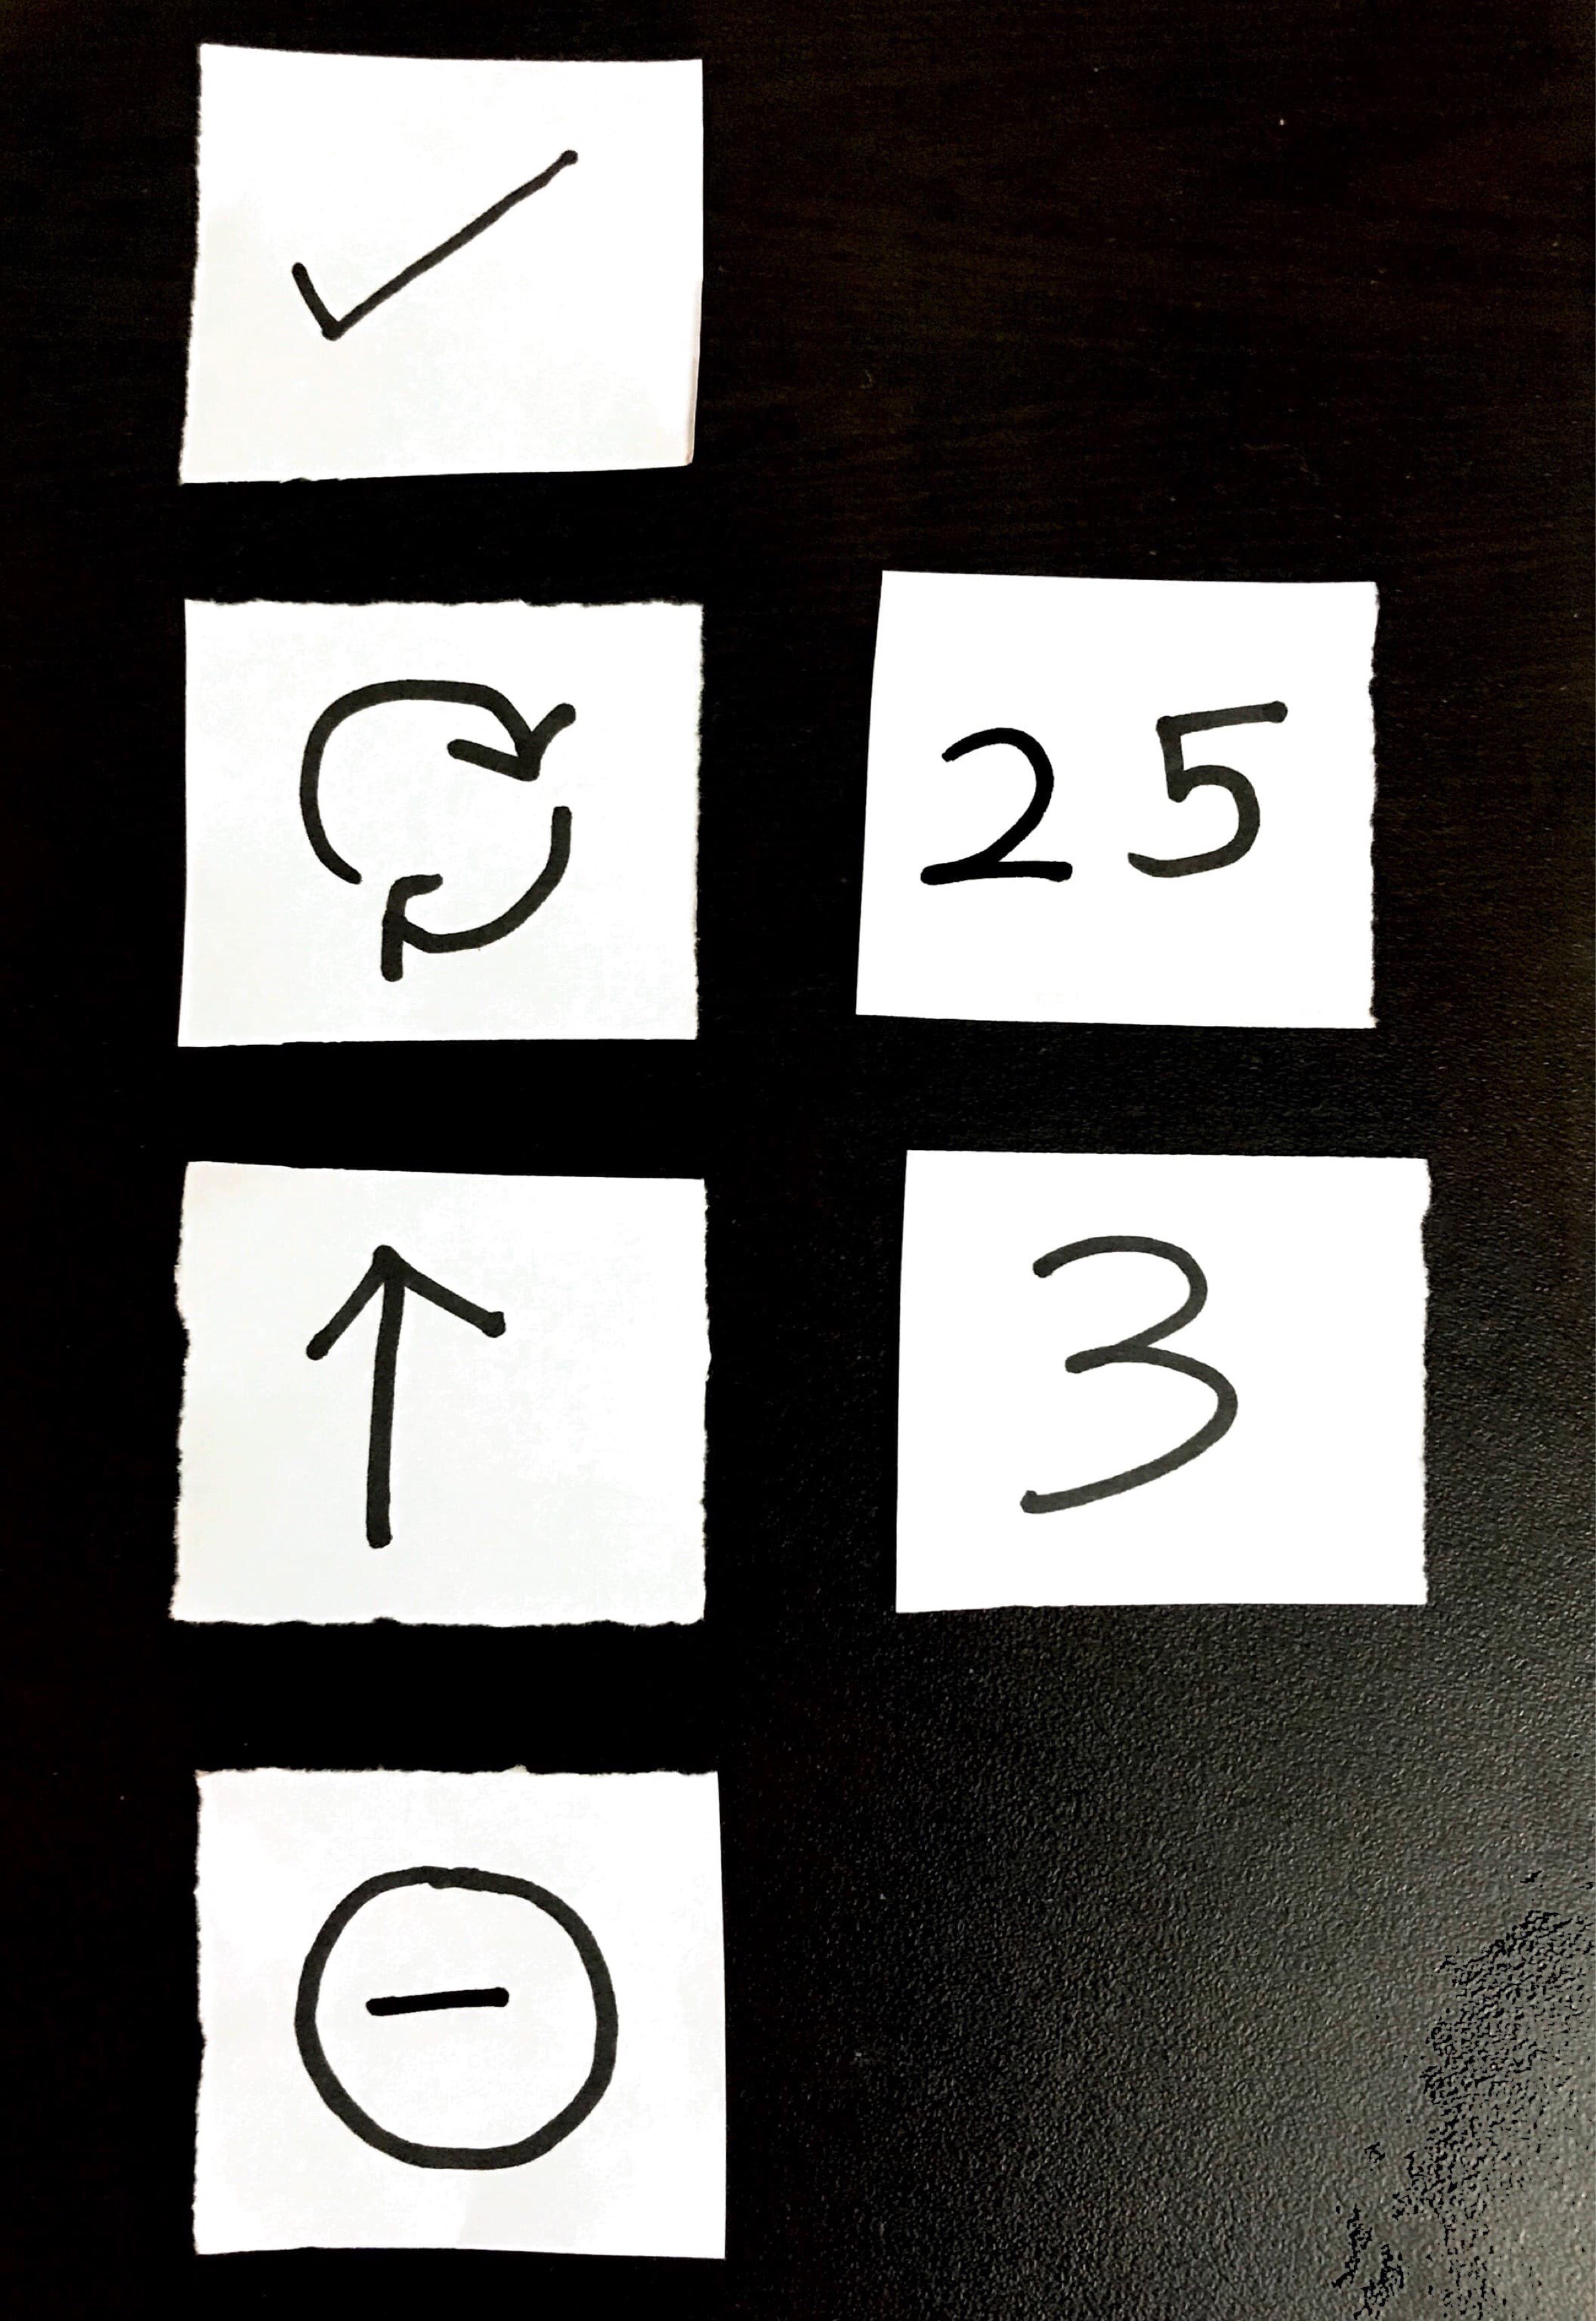 ✓
🔃 25
↑ 3
⊖